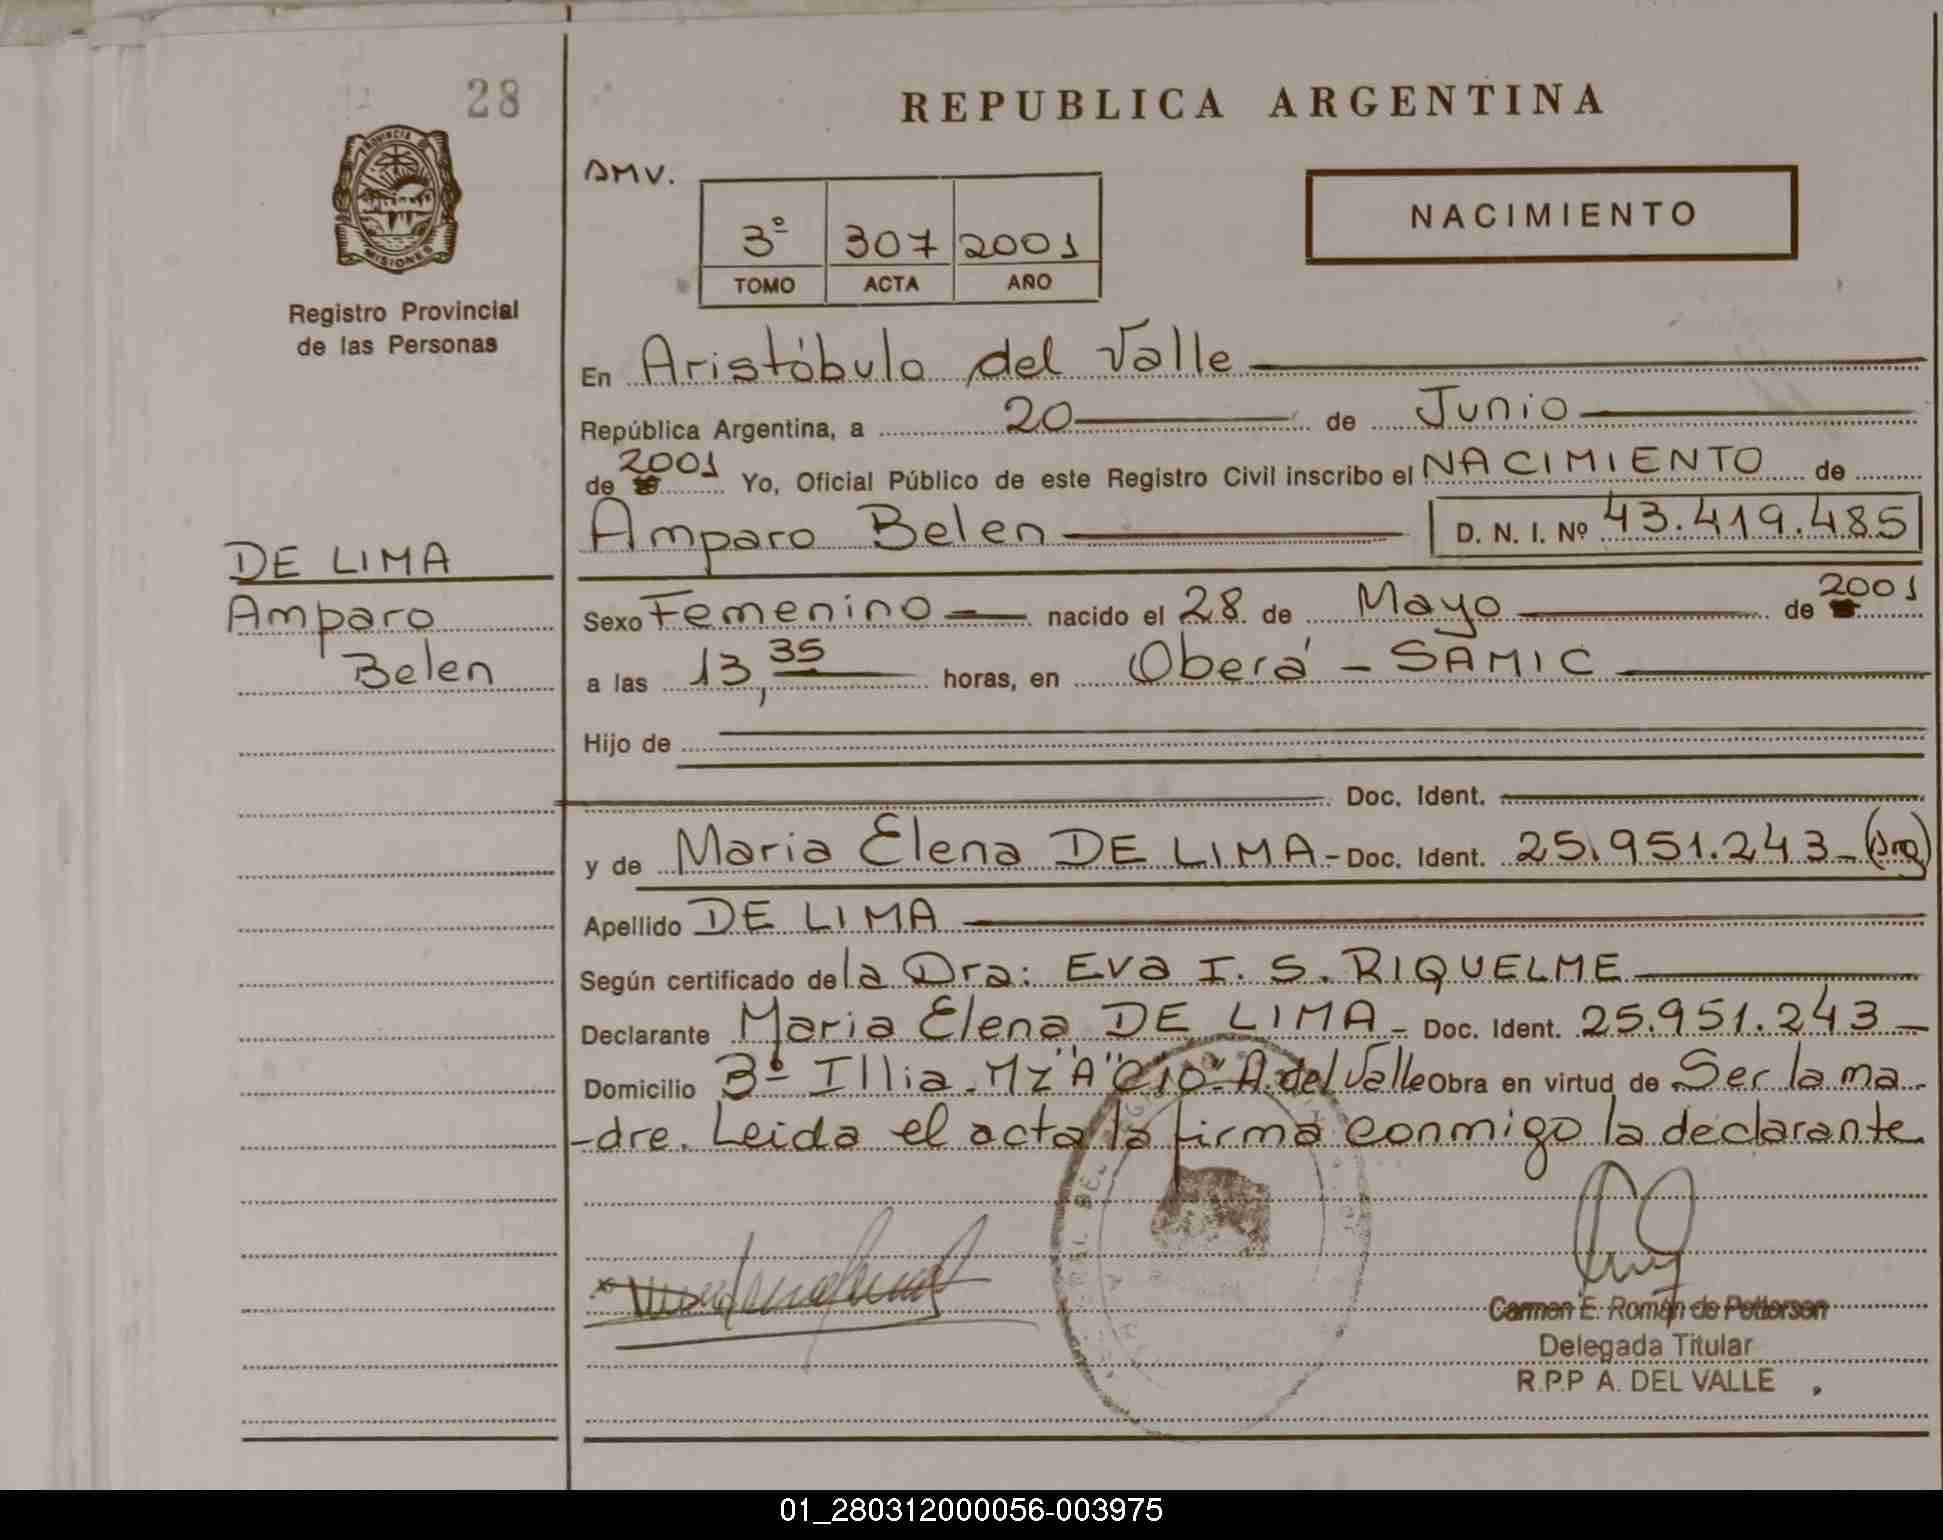 28
REPUBLICA ARGENTINA
PROVINCIA
MISIONES
Registro Provincial
de las Personas
AMV.
3º 307 2001
TOMO ACTA AÑO
NACIMIENTO
En Aristóbulo del Valle
República Argentina, a 20 de Junio
de 2001 Yo, Oficial Público de este Registro Civil inscribo el NACIMIENTO de
Amparo Belen D. N. I. Nº 43.419.485
DE LIMA
Amparo
Belen
Sexo Femenino nacido el 28 de Mayo de 2001
a las 13,35 horas, en Oberá - SAMIC
Hijo de
Doc. Ident.
y de Maria Elena DE LIMA - Doc. Ident. 25.951.243 - (Arg)
Apellido DE LIMA
Según certificado de la Dra: Eva I. S. RIQUELME
Declarante Maria Elena DE LIMA - Doc. Ident. 25.951.243 -
Domicilio Bº Illia - Mz "A" C10 - A. del Valle Obra en virtud de Ser la ma-
-dre. Leida el acta la firma conmigo la declarante
Carmen E. Román de Petterson
Delegada Titular
R.P.P A. DEL VALLE
01_280312000056-003975